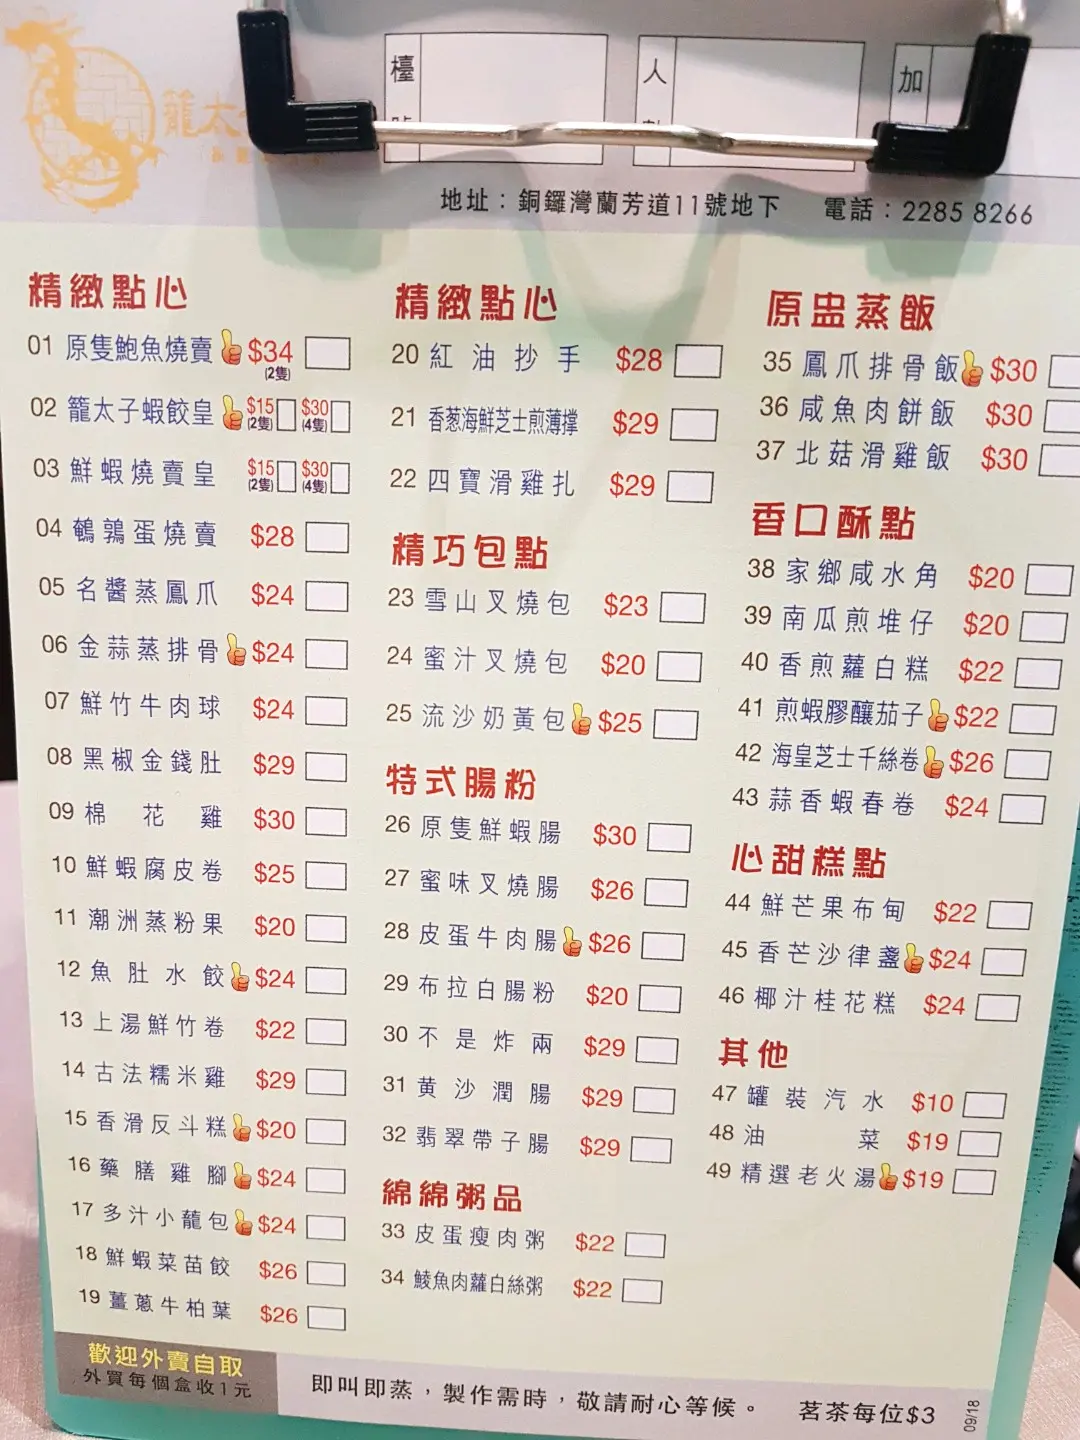 檯
人
加
籠太
地址：銅鑼灣蘭芳道11號地下 電話：2285 8266
精緻點心
01 原隻鮑魚燒賣 $34 (2隻)
02 籠太子蝦餃皇 $15 (2隻) $30 (4隻)
03 鮮蝦燒賣皇 $15 (2隻) $30 (4隻)
04 鵪鶉蛋燒賣 $28
05 名醬蒸鳳爪 $24
06 金蒜蒸排骨 $24
07 鮮竹牛肉球 $24
08 黑椒金錢肚 $29
09 棉花雞 $30
10 鮮蝦腐皮卷 $25
11 潮洲蒸粉果 $20
12 魚肚水餃 $24
13 上湯鮮竹卷 $22
14 古法糯米雞 $29
15 香滑反斗糕 $20
16 藥膳雞腳 $24
17 多汁小蘢包 $24
18 鮮蝦菜苗餃 $26
19 薑蔥牛柏葉 $26
精緻點心
20 紅油抄手 $28
21 香葱海鮮芝士煎薄撐 $29
22 四寶滑雞扎 $29
精巧包點
23 雪山叉燒包 $23
24 蜜汁叉燒包 $20
25 流沙奶黃包 $25
特式腸粉
26 原隻鮮蝦腸 $30
27 蜜味叉燒腸 $26
28 皮蛋牛肉腸 $26
29 布拉白腸粉 $20
30 不是炸兩 $29
31 黃沙潤腸 $29
32 翡翠帶子腸 $29
綿綿粥品
33 皮蛋瘦肉粥 $22
34 鯪魚肉蘿白絲粥 $22
原盅蒸飯
35 鳳爪排骨飯 $30
36 咸魚肉餅飯 $30
37 北菇滑雞飯 $30
香口酥點
38 家鄉咸水角 $20
39 南瓜煎堆仔 $20
40 香煎蘿白糕 $22
41 煎蝦膠釀茄子 $22
42 海皇芝士千絲卷 $26
43 蒜香蝦春卷 $24
心甜糕點
44 鮮芒果布甸 $22
45 香芒沙律盞 $24
46 椰汁桂花糕 $24
其他
47 罐裝汽水 $10
48 油菜 $19
49 精選老火湯 $19
歡迎外賣自取
外買每個盒收1元
即叫即蒸，製作需時，敬請耐心等候。 茗茶每位$3
09/18